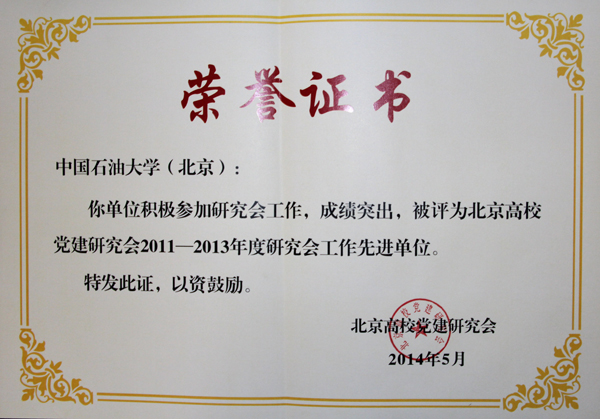 荣誉证书
中国石油大学（北京）：
你单位积极参加研究会工作，成绩突出，被评为北京高校
党建研究会2011—2013年度研究会工作先进单位。
特发此证，以资鼓励。
北京高校党建研究会
2014年5月